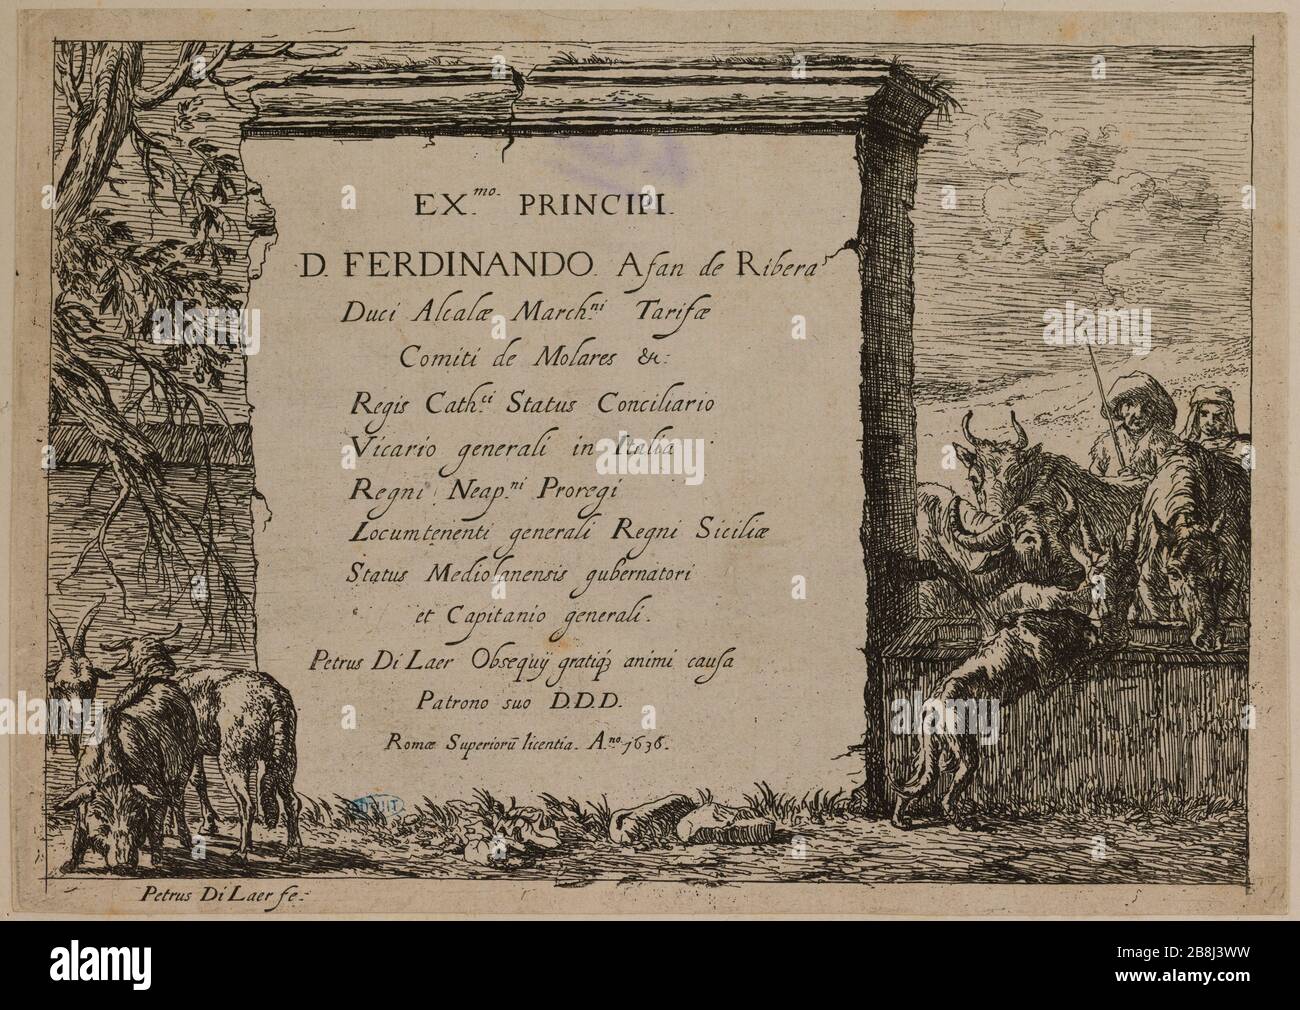 EX.mo. PRINCIPI.
D. FERDINANDO. Afan de Ribera
Duci Alcalæ March.ni Tarifæ
Comiti de Molares &c:
Regis Cath.ci Status Conciliario
Vicario generali in Italia
Regni Neap.ni Proregi
Locumtenenti generali Regni Siciliæ
Status Mediolanensis gubernatori
et Capitanio generali.
Petrus Di Laer Obsequÿ gratiq3 animi causa
Patrono suo D.D.D.
Romæ Superiorũ licentia. A.no. 1636.
Petrus Di Laer fe.
alamy
Image ID: 2B8J3WW
www.alamy.com